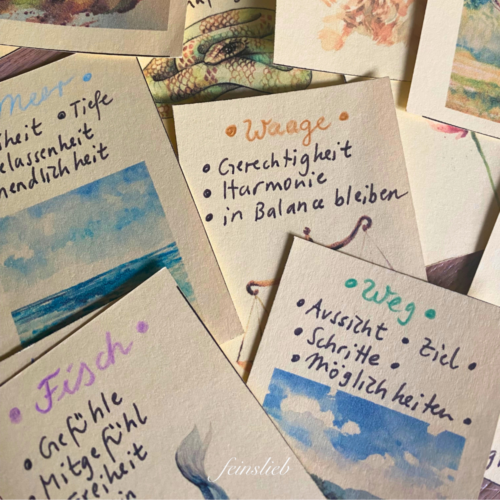 Meer
• Tiefe
• Waage •
• Gerechtigkeit
• Harmonie
• in Balance bleiben
• Weg •
• Aussicht • Ziel •
• Schritte •
• Möglichkeiten •
• Fisch •
• Gefühle
• Mitgefühl
Freiheit
feinslieb